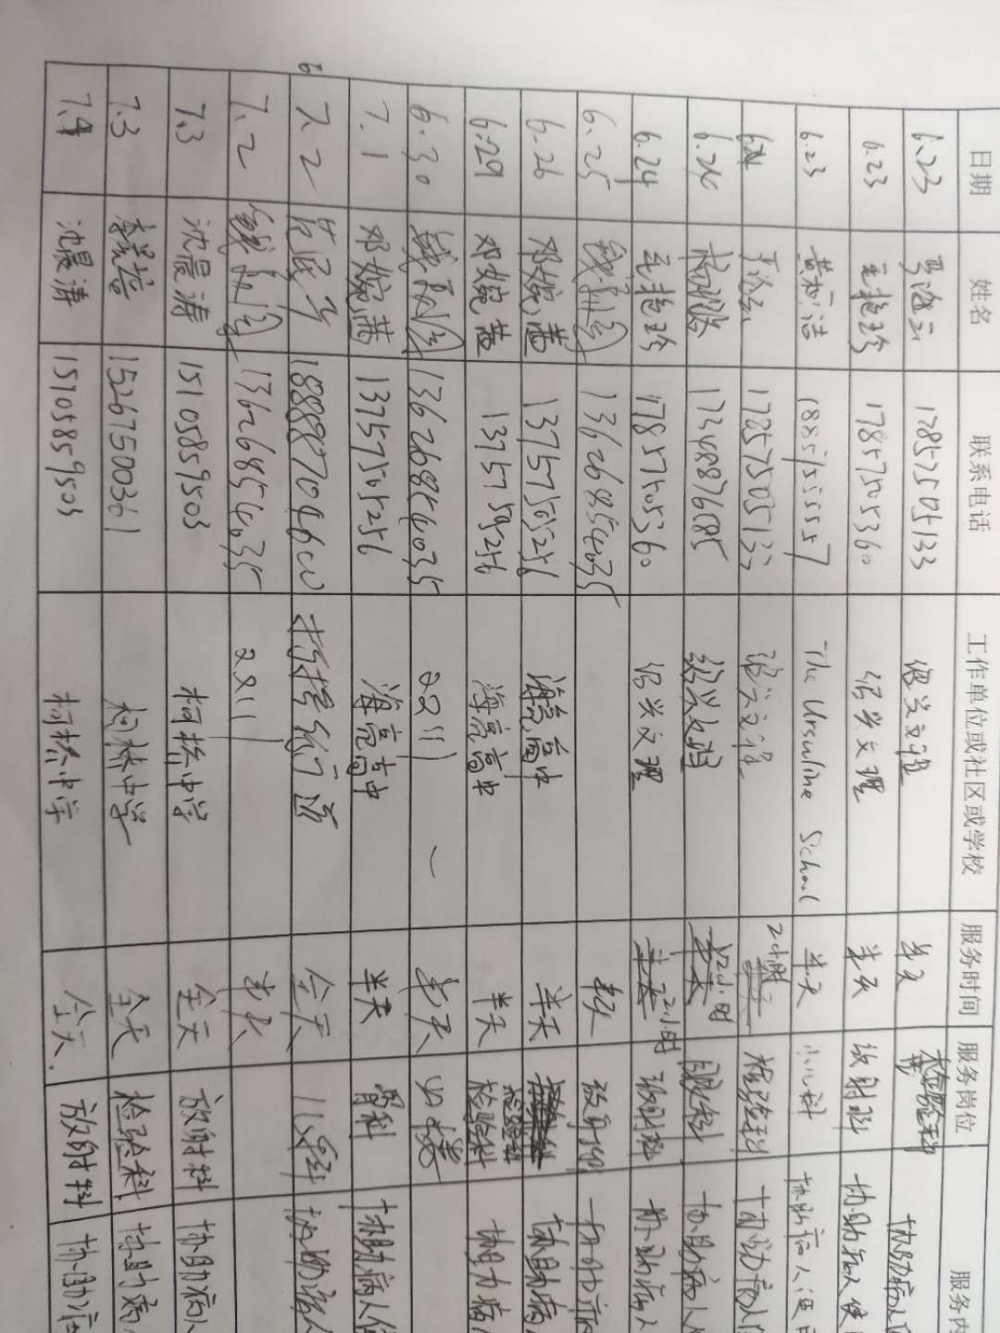 日期 姓名 联系电话 工作单位或社区或学校 服务时间 服务岗位 服务内
6.23 17857505133 绍兴文理 半天 检验科 协助病人
6.23 王艳玲 17857505360 绍兴文理 半天 放射科 协助病人使
6.23 黄 洁 18851555557 The Ursuline School 半天 小儿科 协助病人使用
绍兴文理 2小时 检验科 协助病人
6.24 17348876085 绍兴文理 2小时 协助病人
6.24 王艳玲 17857505360 绍兴文理 2小时 放射科 协助病人
6.25 13626854035 放射科 协助病
6.26 邓婉茜 13757505256 海亮高中 半天 协助病
6.29 邓婉茜 13757505256 海亮高中 半天 检验科 协助病
6.30 13626854035 2211 半天 四楼
7.1 邓婉茜 13757505256 海亮高中 半天 骨科 协助病人使
7.2 18888704600 全天 儿科 协助病人
7.2 13626854035 2211 半天
7.3 沈晨涛 15105859503 柯桥中学 全天 放射科 协助病人
7.3 15267500361 柯桥中学 全天 检验科 协助病
7.4 沈晨涛 15105859503 柯桥中学 全天 放射科 协助病